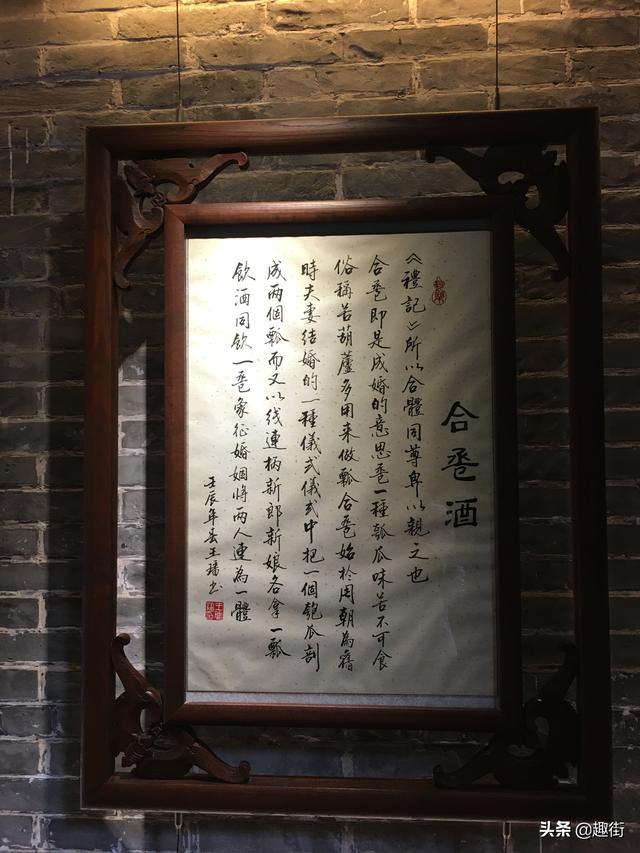 合卺酒
《禮記》所以合體同尊卑以親之也
合卺即是成婚的意思卺一種瓠瓜味苦不可食
俗稱苦葫蘆多用來做瓢合卺始於周朝為舊
時夫妻結婚的一種儀式儀式中把一個匏瓜剖
成兩個瓢而又以线連柄新郎新娘各拿一瓢
飲酒同飲一卺象征婚姻將兩人連為一體
壬辰年
头条 @趣街